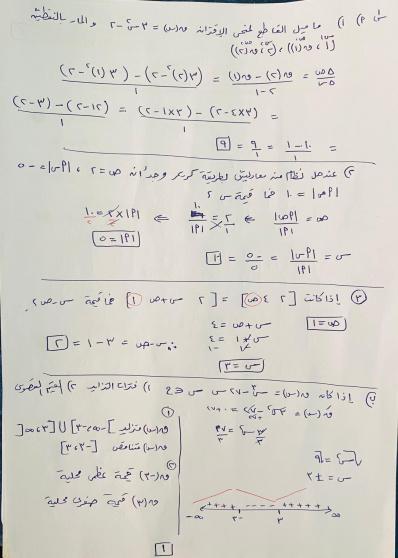 س١ P) ١) ما ميل القاطع لمنحنى الاقتران ق(س) = ٣س² - ٢ والمار بالنقطتين
(١، ق(١))، (٢، ق(٢))
Δص/Δس = (ق(٢) - ق(١))/(٢-١) = ((٣(٢)² - ٢) - (٣(١)² - ٢))/١
= ((٣×٤ - ٢) - (٣×١ - ٢))/١ = ((١٢ - ٢) - (٣ - ٢))/١
= (١٠ - ١)/١ = ٩/١ = ٩
٢) عند حل نظام من معادلتين بطريقة كريمر وجد أن ص = ٢ ، |Pس| = -٥
|Pص| = ١٠ فما قيمة س ؟
ص = |Pص|/|P| ⇐ ٢/١ = ١٠/|P| ⇐ ٢×|P| = ١٠
|P| = ٥
س = |Pس|/|P| = -٥/٥ = -١
٣) إذا كانت [٢ ٤ ص] = [٢ س+ص ١] فما قيمة س - ص ؟
ص = ١
س + ص = ٤
س + ١ = ٤
س = ٣
∴ س - ص = ٣ - ١ = ٢
ب) إذا كان ق(س) = س³ - ٢٧س س ∈ ح ١) فترات التزايد ٢) القيم القصوى
ق(س) = ٣س² - ٢٧ = ٠
س² = ٩
س = ± ٣
١) ق(س) متزايد ]-∞، -٣] ∪ [٣، ∞[
ق(س) متناقص [-٣، ٣]
٢) ق(-٣) قيمة عظمى محلية
ق(٣) قيمة صغرى محلية
-∞ ++++ -٣ ---- ٣ +++++ ∞
١